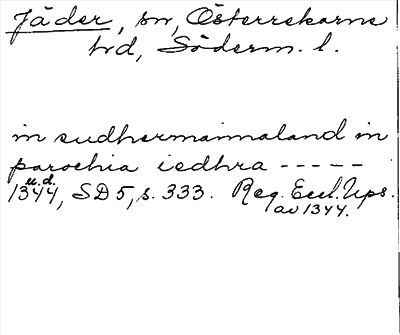 Jäder, sn, Österrekarne
hd, Söderm. l.
in sudhermannaland in
parochia iedhra -----
u.d.
1344, SD 5, s. 333. Reg. Eccl. Ups.
av 1344.